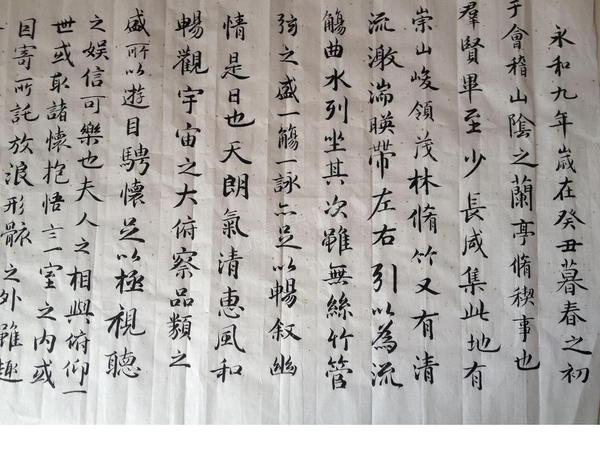 永和九年歲在癸丑暮春之初
于會稽山陰之蘭亭脩稧事也
羣賢畢至少長咸集此地有
崇山峻領茂林脩竹又有清
流激湍暎帶左右引以為流
觴曲水列坐其次雖無絲竹管
弦之盛一觴一詠亦足以暢叙幽
情是日也天朗氣清惠風和
暢觀宇宙之大俯察品類之
盛所以遊目騁懷足以極視聽
之娱信可樂也夫人之相與俯仰一
世或取諸懷抱悟言一室之内或
因寄所託放浪形骸之外雖趣